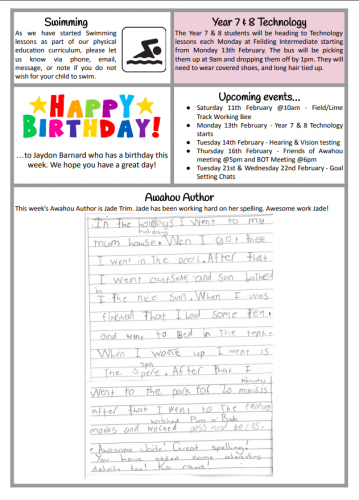 Swimming
As we have started Swimming
lessons as part of our physical
education curriculum, please let
us know via phone, email,
message, or note if you do not
wish for your child to swim.
Year 7 & 8 Technology
The Year 7 & 8 students will be heading to Technology
lessons each Monday at Feilding Intermediate starting
from Monday 13th February. The bus will be picking
them up at 9am and dropping them off by 1pm. They will
need to wear covered shoes, and long hair tied up.
HAPPY
BIRTHDAY!
...to Jaydon Barnard who has a birthday this
week. We hope you have a great day!
Upcoming events...
Saturday 11th February @10am - Field/Lime
Track Working Bee
Monday 13th February - Year 7 & 8 Technology
starts
Tuesday 14th February - Hearing & Vision testing
Thursday 16th February - Friends of Awahou
meeting @5pm and BOT Meeting @6pm
Tuesday 21st & Wednesday 22nd February - Goal
Setting Chats
Awahou Author
This week's Awahou Author is Jade Trim. Jade has been working hard on her spelling. Awesome work Jade!
In the holidays I went to my
holidays
mum house. Wen I got there
I went in the pool. After that
I went outside and sun bathed
in
I the nice sun. When I was
finished that I had some tea.
and went to Bed in the
When I woke up I went is
spa
The spere. After that I
went to the park for 20 minists
minutes
after that I went to the
watched Puss n' Boots
moves and
Awesome Jade! Great spelling!
You have added some interesting
details too! Ka rawe!